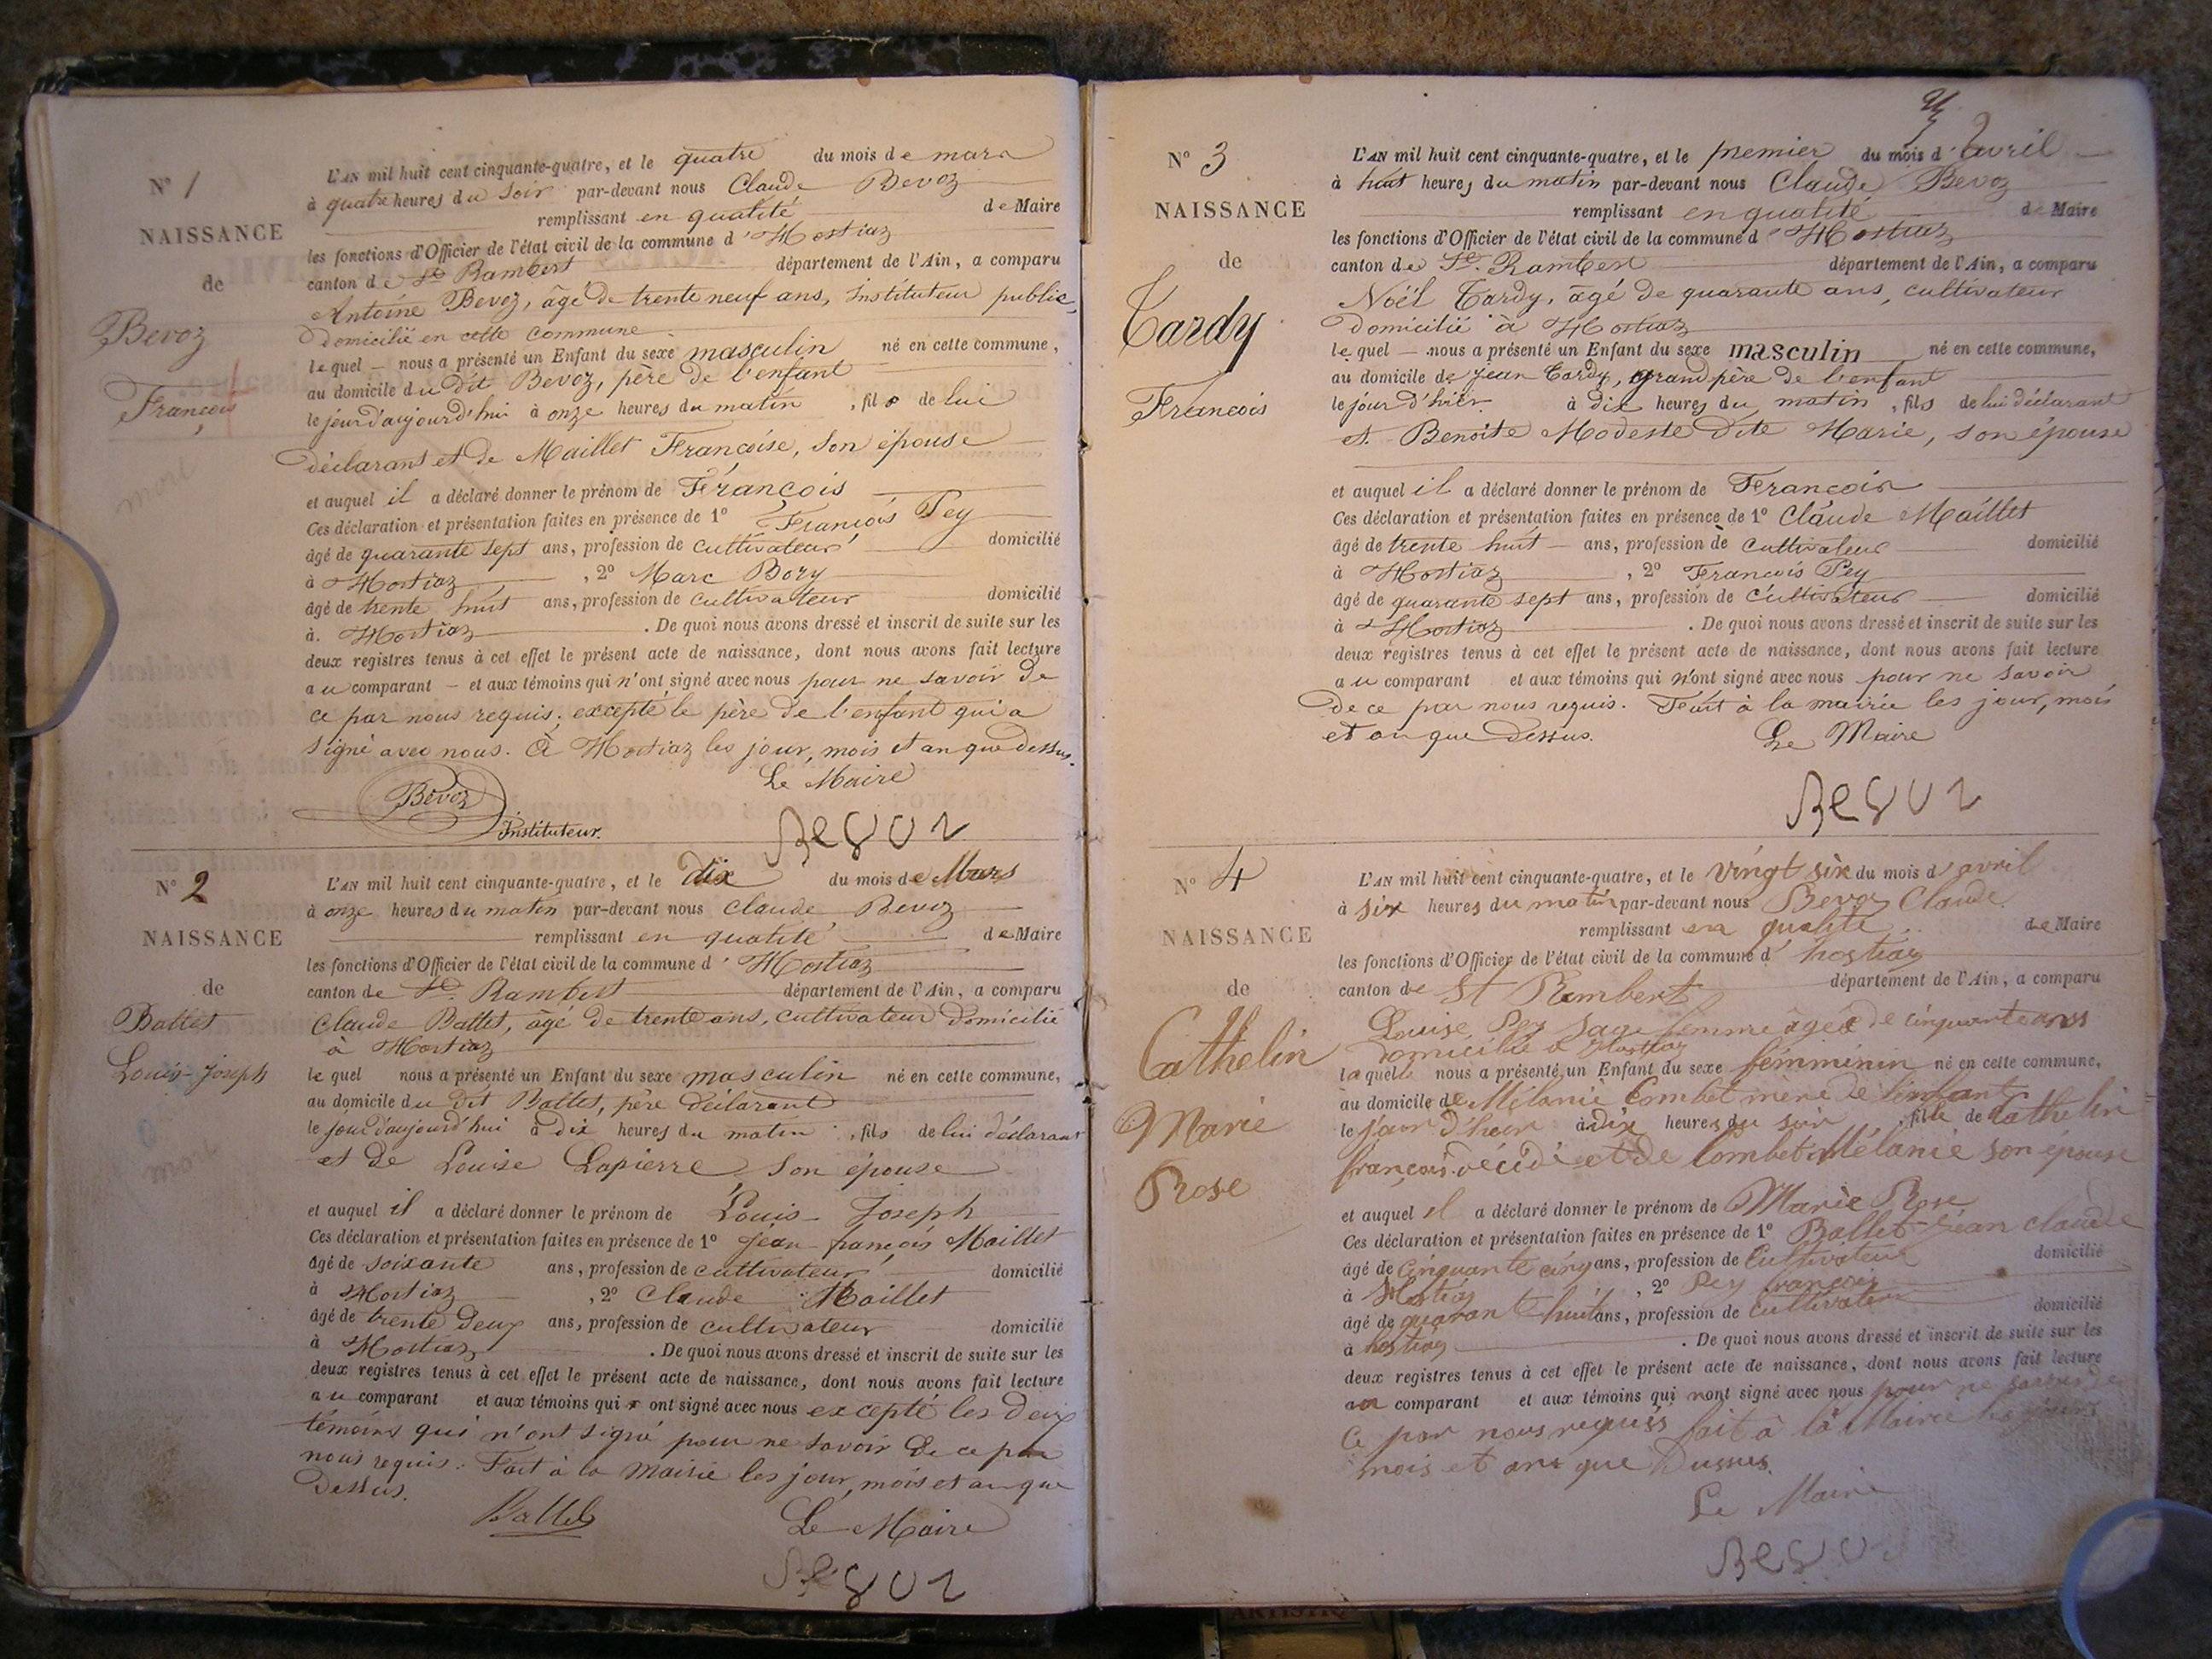 N° 1
NAISSANCE
de
Bevoz
François
L'AN mil huit cent cinquante-quatre, et le quatre du mois de mars
à quatre heures du soir par-devant nous Claude Bevoz
remplissant en qualité de Maire
les fonctions d'Officier de l'état civil de la commune d'Hostiaz
canton de St Rambert département de l'Ain, a comparu
Antoine Bevoz, âgé de trente neuf ans, instituteur public,
domicilié en cette commune
lequel nous a présenté un Enfant du sexe masculin né en cette commune,
au domicile du dit Bevoz, père de l'enfant
le jour d'aujourd'hui à onze heures du matin, fils de lui
déclarant et de Maillet Françoise, son épouse
et auquel il a déclaré donner le prénom de François
Ces déclaration et présentation faites en présence de 1° François Pey
âgé de quarante sept ans, profession de cultivateur domicilié
à Hostiaz, 2° Marc Bory
âgé de trente huit ans, profession de cultivateur domicilié
à Hostiaz. De quoi nous avons dressé et inscrit de suite sur les
deux registres tenus à cet effet le présent acte de naissance, dont nous avons fait lecture
au comparant et aux témoins qui n'ont signé avec nous pour ne savoir de
ce par nous requis; excepté le père de l'enfant qui a
signé avec nous. À Hostiaz les jour, mois et an que dessus.
Le Maire
Bevoz
Instituteur.
Bevoz
N° 2
NAISSANCE
de
Ballet
Louis-Joseph
L'AN mil huit cent cinquante-quatre, et le dix du mois de Mars
à onze heures du matin par-devant nous Claude Bevoz
remplissant en qualité de Maire
les fonctions d'Officier de l'état civil de la commune d'Hostiaz
canton de St Rambert département de l'Ain, a comparu
Claude Ballet, âgé de trente ans, cultivateur domicilié
à Hostiaz
lequel nous a présenté un Enfant du sexe masculin né en cette commune,
au domicile du dit Ballet, père déclarant
le jour d'aujourd'hui à dix heures du matin, fils de lui déclarant
et de Louise Lapierre, son épouse
et auquel il a déclaré donner le prénom de Louis-Joseph
Ces déclaration et présentation faites en présence de 1° Jean-françois Maillet
âgé de soixante ans, profession de cultivateur domicilié
à Hostiaz, 2° Claude Maillet
âgé de trente deux ans, profession de cultivateur domicilié
à Hostiaz. De quoi nous avons dressé et inscrit de suite sur les
deux registres tenus à cet effet le présent acte de naissance, dont nous avons fait lecture
au comparant et aux témoins qui ont signé avec nous excepté les deux
témoins qui n'ont signé pour ne savoir de ce par
nous requis. Fait à la Mairie les jour, mois et an que
dessus.
Ballet
Le Maire
Bevoz
N° 3
NAISSANCE
de
Tardy
François
L'AN mil huit cent cinquante-quatre, et le premier du mois d'avril
à huit heures du matin par-devant nous Claude Bevoz
remplissant en qualité de Maire
les fonctions d'Officier de l'état civil de la commune d'Hostiaz
canton de St. Rambert département de l'Ain, a comparu
Noël Tardy, âgé de quarante ans, cultivateur
domicilié à Hostiaz
lequel nous a présenté un Enfant du sexe masculin né en cette commune,
au domicile de Jean Tardy, grand père de l'enfant
le jour d'hier à dix heures du matin, fils de lui déclarant
et Benoite Modeste dite Marie, son épouse
et auquel il a déclaré donner le prénom de François
Ces déclaration et présentation faites en présence de 1° Claude Maillet
âgé de trente huit ans, profession de cultivateur domicilié
à Hostiaz, 2° François Pey
âgé de quarante sept ans, profession de cultivateur domicilié
à Hostiaz. De quoi nous avons dressé et inscrit de suite sur les
deux registres tenus à cet effet le présent acte de naissance, dont nous avons fait lecture
au comparant et aux témoins qui n'ont signé avec nous pour ne savoir
de ce par nous requis. Fait à la mairie les jour, mois
et an que dessus.
Le Maire
Bevoz
N° 4
NAISSANCE
de
Cathelin
Marie
Rose
L'AN mil huit cent cinquante-quatre, et le vingt six du mois d'avril
à six heures du matin par-devant nous Bevoz Claude
remplissant en qualité de Maire
les fonctions d'Officier de l'état civil de la commune d'hostiaz
canton de St Rambert département de l'Ain, a comparu
Louise Pey sage femme âgée de cinquante ans
domiciliée à Hostiaz
laquelle nous a présenté un Enfant du sexe fémminin né en cette commune,
au domicile de Mélanie Combet mère de l'enfant
le jour d'heir à dix heures du soir, fille de Cathelin
françois décédé et de Combet Mélanie son épouse
et auquel il a déclaré donner le prénom de Marie Rose
Ces déclaration et présentation faites en présence de 1° Ballet Jean claude
âgé de cinquante cinq ans, profession de Cultivateur domicilié
à Hostiaz, 2° Pey françois
âgé de quarante huit ans, profession de cultivateur domicilié
à hostiaz. De quoi nous avons dressé et inscrit de suite sur les
deux registres tenus à cet effet le présent acte de naissance, dont nous avons fait lecture
au comparant et aux témoins qui nont signé avec nous pour ne savoir de
ce par nous requis fait à la Mairie les jours
mois et an que dessus.
Le Maire
Bevoz